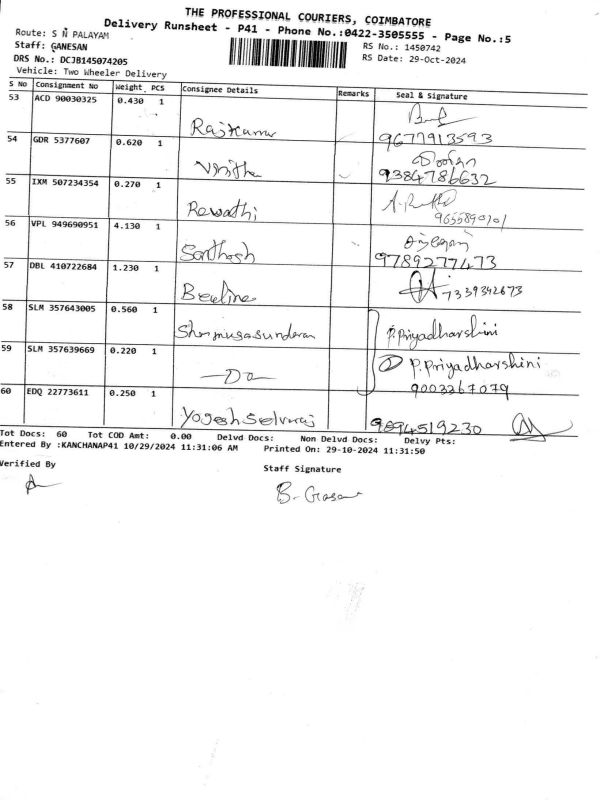 THE PROFESSIONAL COURIERS, COIMBATORE
Delivery Runsheet - P41 - Phone No.:0422-3505555 - Page No.:5
Route: S N PALAYAM
RS No.: 1450742
Staff: GANESAN
RS Date: 29-Oct-2024
DRS No.: DCJB145074205
Vehicle: Two Wheeler Delivery
S No Consignment No Weight PCS Consignee Details Remarks Seal & Signature
53 ACD 90030325 0.430 1
Rajkumar 9677913593
54 GDR 5377607 0.620 1
Vinitha 9384786632
55 IXM 507234354 0.270 1
Rewathi
56 VPL 949690951 4.130 1
Santhosh 9789277473
57 DBL 410722684 1.230 1
Beeline 7339342673
58 SLM 357643005 0.560 1
Shanmugasundaram P.Priyadharshini
59 SLM 357639669 0.220 1
—Do— P.Priyadharshini
9003367079
60 EDQ 22773611 0.250 1
Yogesh Selvaraj 9894519230
Tot Docs: 60 Tot COD Amt: 0.00 Delvd Docs: Non Delvd Docs: Delvy Pts:
Entered By :KANCHANAP41 10/29/2024 11:31:06 AM Printed On: 29-10-2024 11:31:50
Verified By Staff Signature